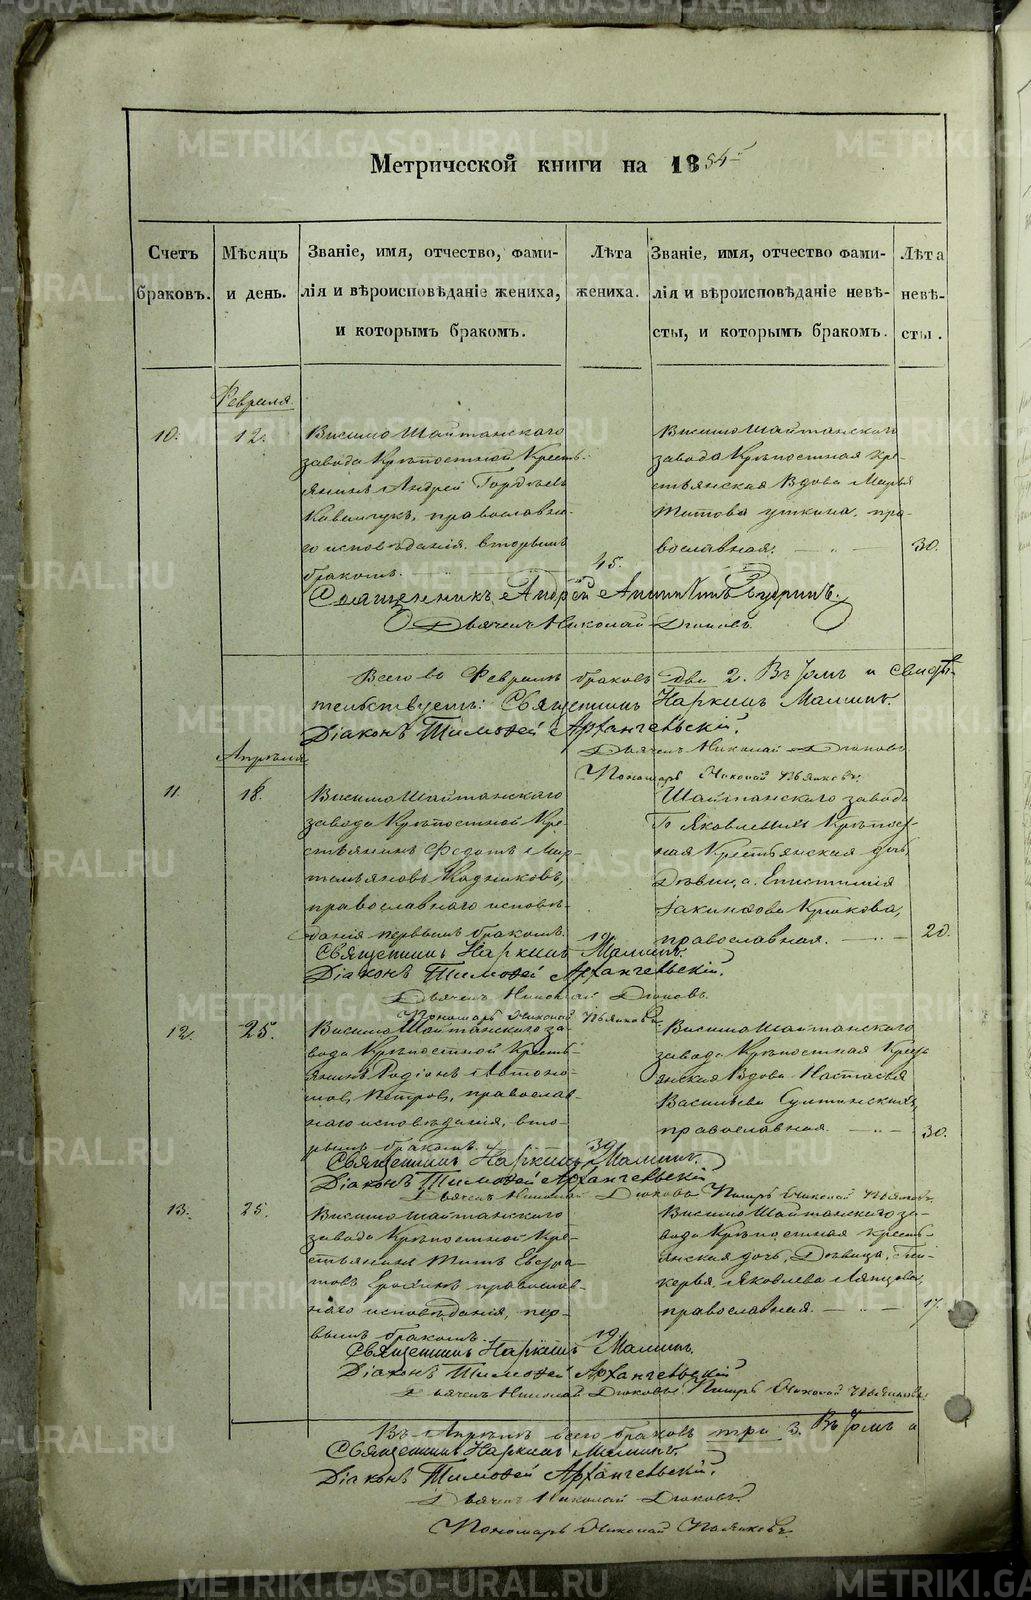 Метрической книги на 1854
Счетъ браковъ.
Мѣсяцъ и день.
Званіе, имя, отчество, фами-
лія и вѣроисповѣданіе жениха,
и которымъ бракомъ.
Лѣта жениха.
Званіе, имя, отчество фами-
лія и вѣроисповѣданіе невѣ-
сты, и которымъ бракомъ.
Лѣта невѣ-
сты.
Февраля
10.
12.
Висимо Шайтанскаго
завода Крѣпостной Кресть-
янинъ Андрей Гордѣевъ
православна-
го исповѣданія. вторымъ
бракомъ.
45.
Висимо Шайтанскаго
завода Крѣпостная Кре-
стьянская Вдова Марья
Титова Уткина. пра-
вославная.
30.
Священникъ Андрей
Дьячекъ Николай Дюковъ.
Всего въ Февралѣ браковъ два 2. Въ томъ и свидѣ-
тельствуемъ: Священникъ Наркисъ Маминъ.
Діаконъ Тимофей Архангельскій.
Дьячекъ Николай Дюковъ.
Пономарь Николай
Апрѣля
11.
18.
Висимо Шайтанскаго
завода Крѣпостной Кре-
стьянинъ Федотъ Мар-
темьяновъ Кадниковъ,
православнаго исповѣ-
данія первымъ бракомъ.
19.
Шайтанскаго завода
Гг Яковлевыхъ Крѣпост-
ная Крестьянская дочь
Дѣвица Епистимія
Іакинфова Крюкова,
православная.
20.
Священникъ Наркисъ Маминъ.
Діаконъ Тимофей Архангельскій.
Дьячекъ Николай Дюковъ.
Пономарь Николай
12.
25.
Висимо Шайтанскаго за-
вода Крѣпостной Кресть-
янинъ Родіонъ Автоно-
мовъ Петровъ, православ-
наго исповѣданія, вто-
рымъ бракомъ.
39.
Висимо Шайтанскаго
завода Крѣпостная Кресть-
янская Вдова Настасья
Васильева
православная.
30.
Священникъ Наркисъ Маминъ.
Діаконъ Тимофей Архангельскій
Дьячекъ Николай Дюковъ Николай
13.
25.
Висимо Шайтанскаго
завода Крѣпостной Кре-
стьянинъ Титъ Евстра-
товъ православ-
наго исповѣданія, пер-
вымъ бракомъ.
19.
Висимо Шайтанскаго за-
вода Крѣпостная кресть-
янская дочь, Дѣвица, Гли-
керья Яковлева
православная.
17.
Священникъ Наркисъ Маминъ.
Діаконъ Тимофей Архангельскій
Дьячекъ Николай Дюковъ. Николай
Въ Апрѣлѣ всего браковъ три 3. Въ томъ и
Священникъ Наркисъ Маминъ.
Діаконъ Тимофей Архангельскій.
Дьячекъ Николай Дюковъ.
Пономарь Николай
METRIKI.GASO-URAL.RU